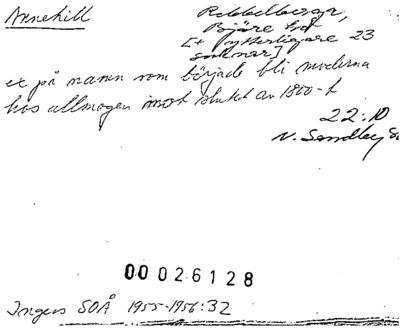 Annehill
Rebbelberga,
Bjäre hd
[+ ytterligare 23
socknar]
ex på namn som började bli moderna
hos allmogen mot slutet av 1800-t
22:10
N. Sandberg
00026128
Ingers SOÅ 1955-1956:32